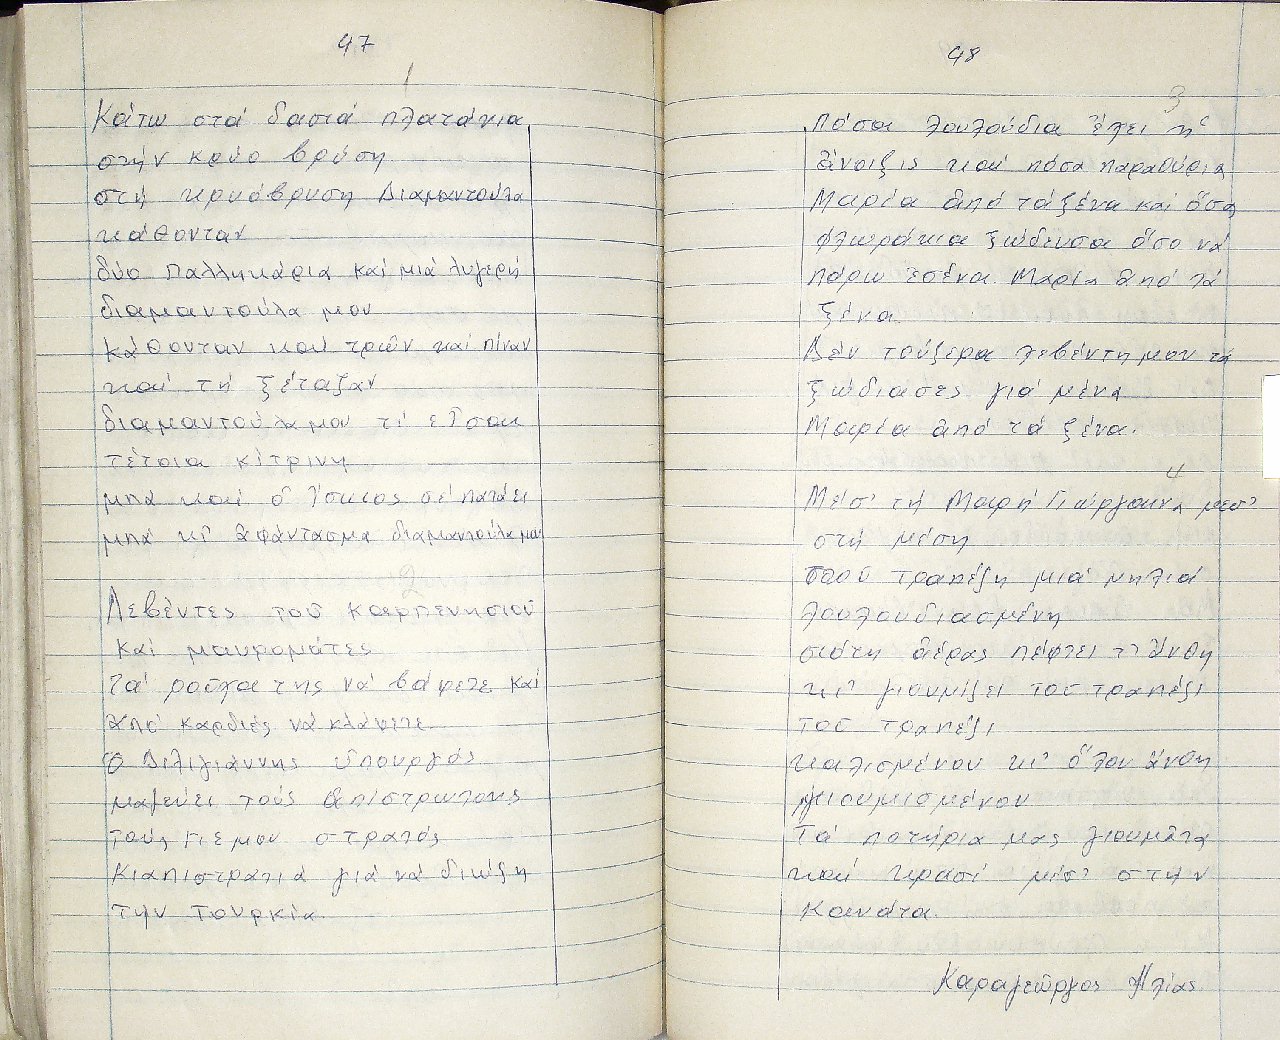 47
1
Κάτω στά δασιά πλατάνια
στήν κρύο βρύση
στή κρυόβρυση Διαμαντούλα
κάθονταν
δύο παλληκάρια καί μιά λυγερή
διαμαντούλα μου
κάθονταν καί τρῶν καί πίναν
καί τή ξέταζαν
διαμαντούλα μου τί εἶσαι
τέτοια κίτρινη
μπά καί ὁ ἴσκιος σέ πατάει
μπά κι ἀφάντασμα διαμαντούλα μου
2
Λεβέντες τοῦ Καρπενησιοῦ
καί μαυρομάτες
τά ροῦχα της νά βάψετε καί
ἀπό καρδιές νά κλάψετε
ὁ Διλιγιάννης ὑπουργός
μαζεύει τούς ἀπίστρωτους
τούς γιέ μου στρατός
Κιαπιστρατιά γιά νά διώξη
τήν Τουρκία.
48
3
Πόσα λουλούδια ἔχει ἡ
ἄνοιξις καί πόσα παραθύρια
Μαρία ἀπό τά ξένα καί ὅσα
φλωράκια ξώδευσα ὅσο νά
πάρω ἐσένα Μαρία ἀπό τά
ξένα.
Δέν τοὔξερα λεβέντη μου τά
ξώδιασες γιά μένα
Μαρία ἀπό τά ξένα.
4
Μέσ' τή Μαρή Γιώργαινα μέσ'
στή μέση
τραπέζη μιά μηλιά
λουλουδιασμένη
σιότη ἀέρας πέφτει τ' ἄνθη
κι' γιουμίζει τοῦ τραπέζι
τοῦ τραπέζι
καλισμένου κι' ὅλου ἄνθη
γιουμισμένου
Τά ποτήρια μας γιουμάτα
καί κρασί μέσ' στήν
κανάτα.
Καραγεῶργος Ἠλίας